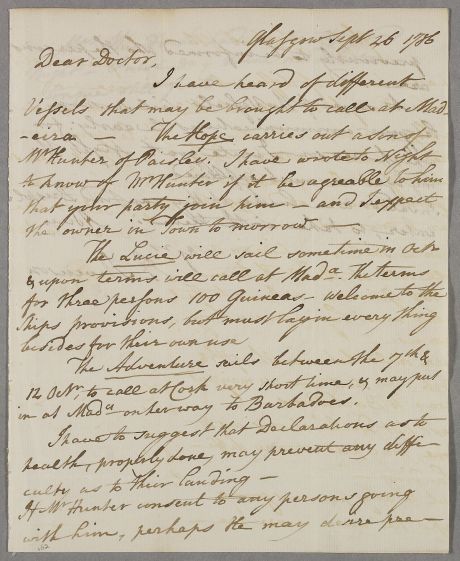 Glasgow Sept 26 1786
Dear Doctor,
I have heard of different
Vessels that may be brought to call at Mad
-eira — The Hope carries out a son of
Mr Hunter of Paisley. I have wrote to Night
to know of Mr Hunter if it be agreable to him
that your party join him — and I expect
the owner in Town to morrow —
The Lucie will sail sometime in Octr
& upon terms will call at Mada. The terms
for three persons 100 Guineas — welcome to the
Ships provisions, but must lay in every thing
besides for their own use
The Adventure sails between the 7th &
12 Octr, to call at Cork very short time, & may put
in at Mada on her way to Barbadoes.
I have to suggest that Declarations as to
health, properly done, may prevent any diffi-
culty as to their landing —
If Mr Hunter consent to any persons going
with him, perhaps He may desire pre—